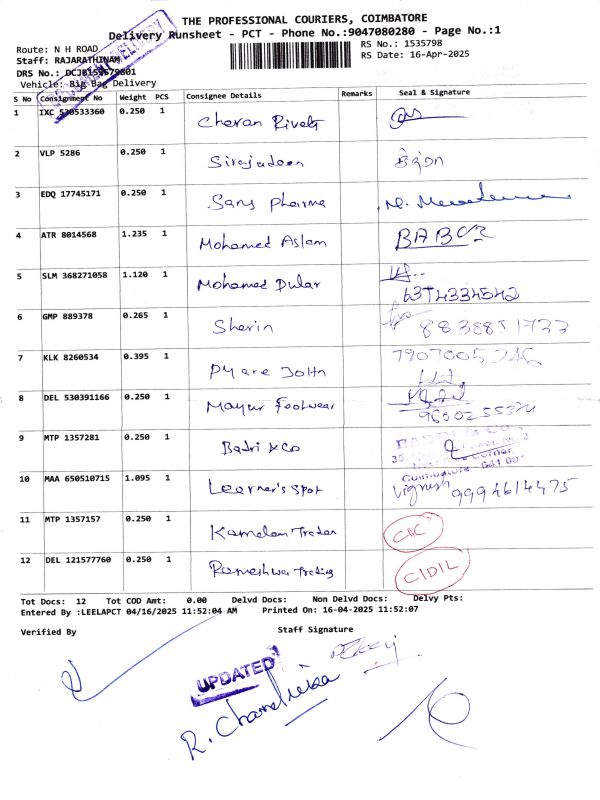 THE PROFESSIONAL COURIERS, COIMBATORE
Delivery Runsheet - PCT - Phone No.:9047080280 - Page No.:1
Route: N H ROAD
RS No.: 1535798
Staff: RAJARATHINAM
RS Date: 16-Apr-2025
DRS No.:
Vehicle: Big Bag Delivery
S No Consignment No Weight PCS Consignee Details Remarks Seal & Signature
1 IXC 530533360 0.250 1 Cheran Rivets
2 VLP 5286 0.250 1 Sirajudeen
3 EDQ 17745171 0.250 1 Sans Pharma
4 ATR 8014568 1.235 1 Mohamed Aslam
5 SLM 368271058 1.120 1 Mohamed Dular 6374334542
6 GMP 889378 0.265 1 Sherin 8838851733
7 KLK 8260534 0.395 1 Pyare John 7907005246
8 DEL 530391166 0.250 1 Mayur Footwear
9 MTP 1357281 0.250 1 Badri & Co Corner Coimbatore
10 MAA 650510715 1.095 1 Learner's Spot Vignesh 9994614475
11 MTP 1357157 0.250 1 Kamalam Trader
12 DEL 121577760 0.250 1 Rameshwar Trading
Tot Docs: 12 Tot COD Amt: 0.00 Delvd Docs: Non Delvd Docs: Delvy Pts:
Entered By :LEELAPCT 04/16/2025 11:52:04 AM Printed On: 16-04-2025 11:52:07
Verified By Staff Signature
UPDATED